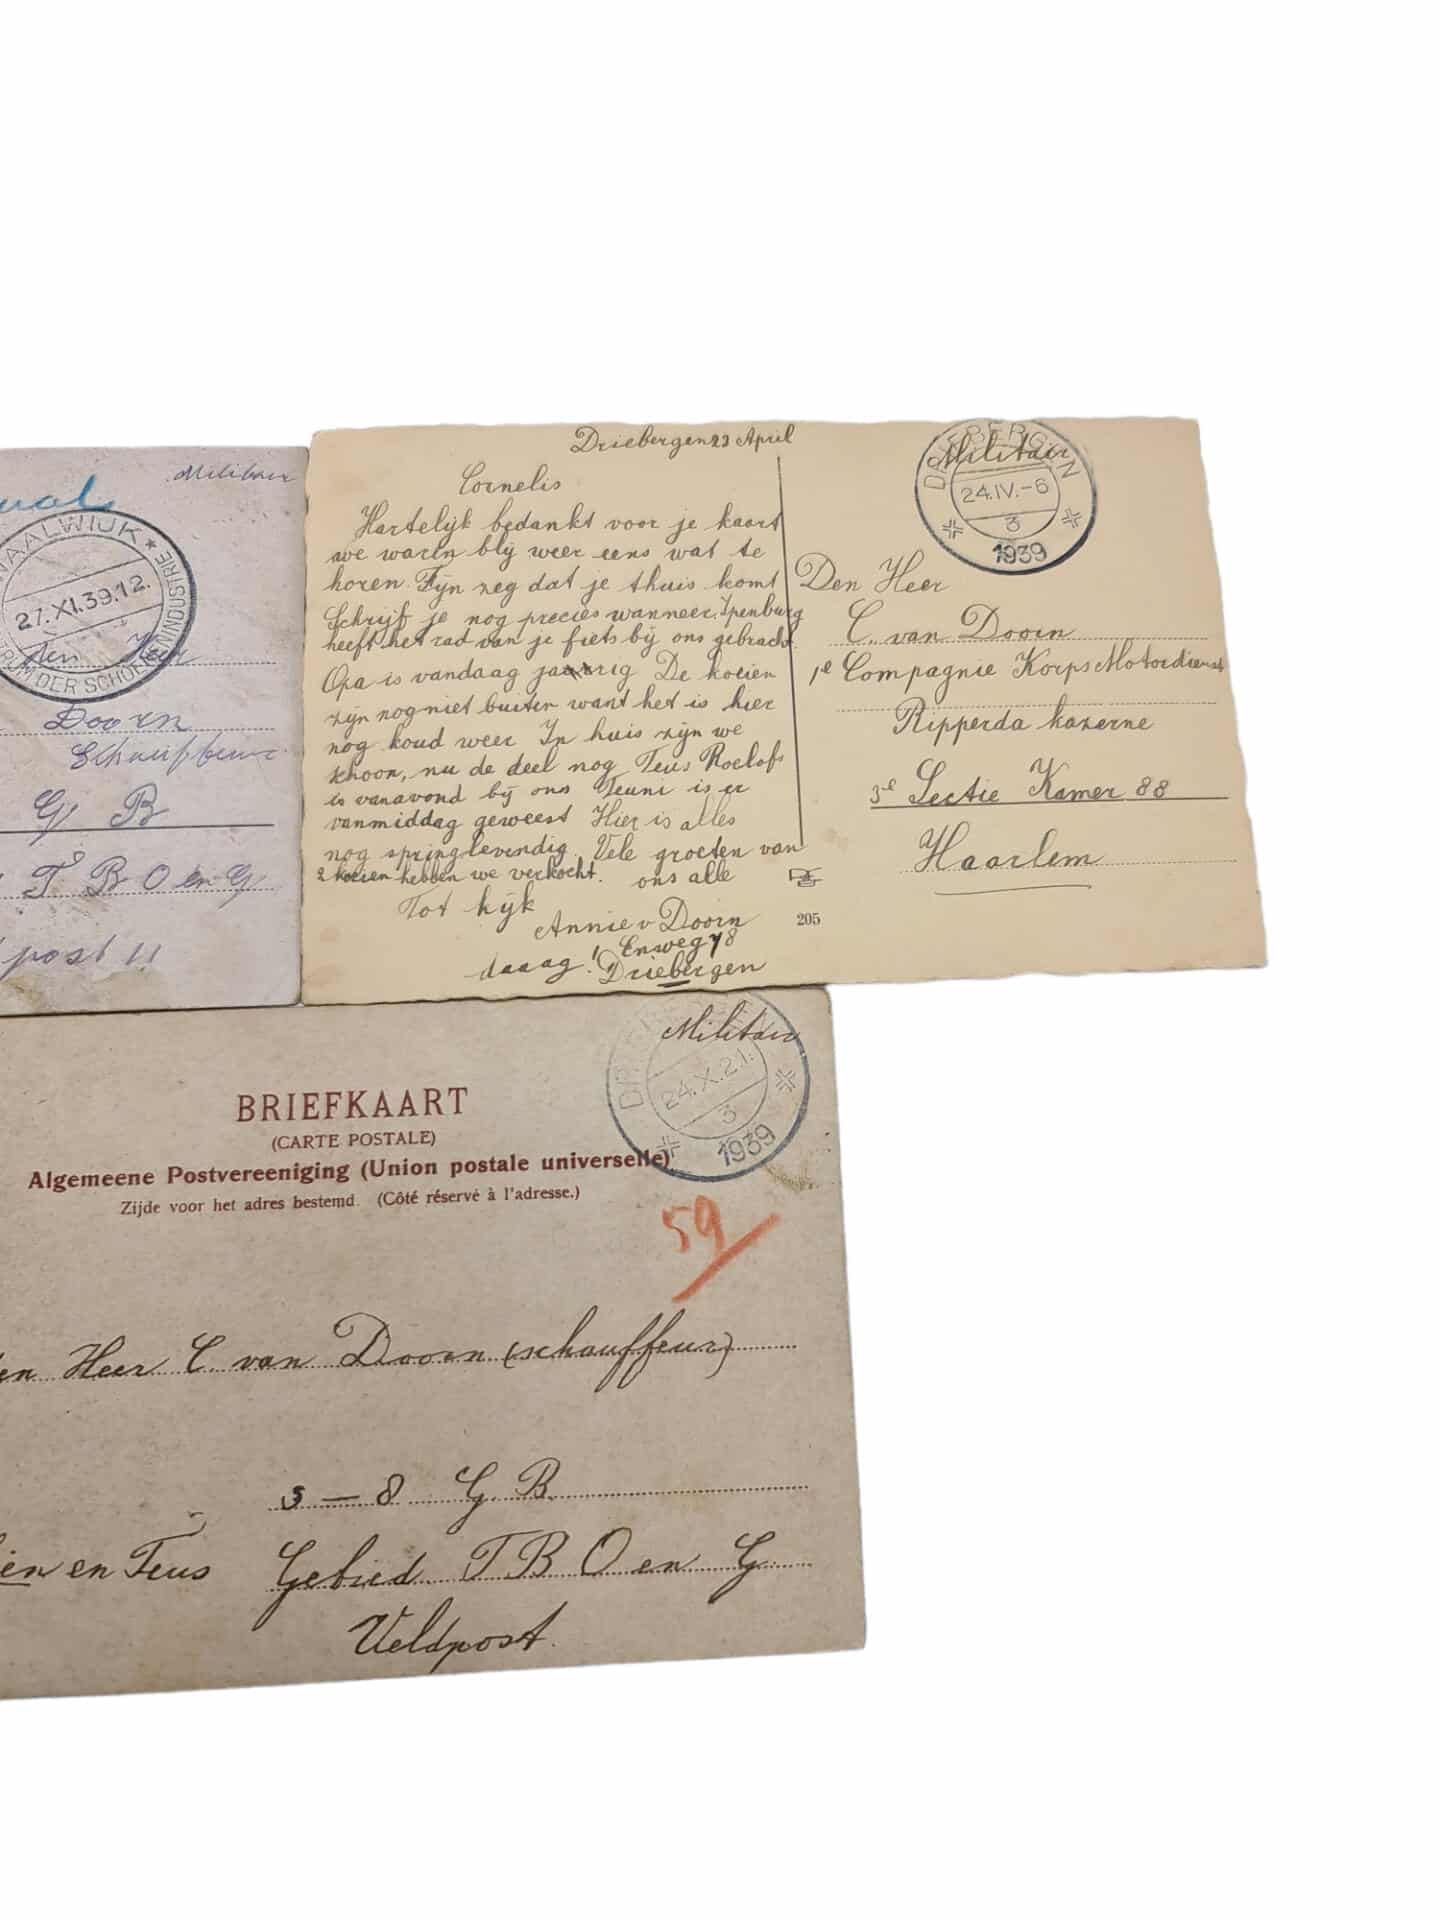 Militair
WAALWIJK
27.XI.39.12.
CENTRUM DER SCHOENINDUSTRIE
den Heer
Doorn
Schauffeur
G B
T B O en G
post 11
Driebergen 23 April
Cornelis
Hartelijk bedankt voor je kaart
we waren blij weer eens wat te
horen. Fijn zeg dat je thuis komt
Schrijf je nog precies wanneer. Ipenburg
heeft het rad van je fiets bij ons gebracht
Opa is vandaag jarig De koeien
zijn nog niet buiten want het is hier
nog koud weer In huis zijn we
schoon, nu de deel nog Teus Roelofs
is vanavond bij ons Teuni is er
vanmiddag geweest Hier is alles
nog springlevendig. Vele groeten van
2 koeien hebben we verkocht. ons alle
Tot kijk
Annie v Doorn
daaag! Enweg 78
Driebergen
205
Militair
DRIEBERGEN
24.IV.-6
3
1939
Den Heer
C. van Doorn
1e Compagnie Korps Motordienst
Ripperda kazerne
3e Sectie Kamer 88
Haarlem
Militair
24.X.21.
3
1939
BRIEFKAART
(CARTE POSTALE)
Algemeene Postvereeniging (Union postale universelle)
Zijde voor het adres bestemd. (Côté réservé à l'adresse.)
59
en Heer C. van Doorn (schauffeur)
3 — 8 G. B.
en Teus Gebied T B O en G.
Veldpost.